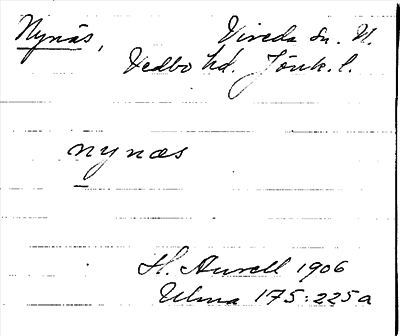 Nynäs, Vireda sn. N.
Vedbo hd. Jönk. l.
nynæs
H. Aurell 1906
Ulma 175:225a